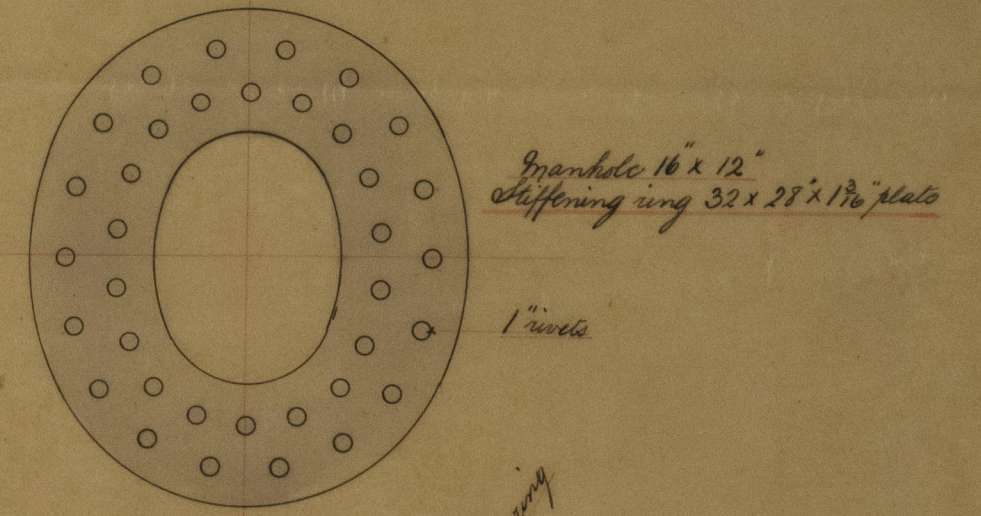 Manhole 16" x 12"
Stiffening ring 32 x 28" x 1 3/16" plate
1" rivets
ring